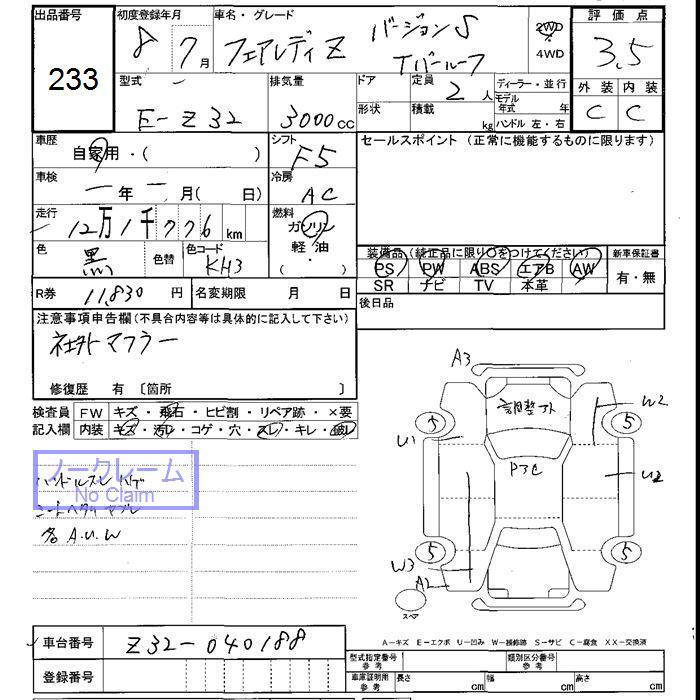 出品番号
233
初度登録年月
8 7月
車名・グレード
フェアレディZ バージョンS
Tバールーフ
2WD
4WD
評価点
3.5
外装 内装
C C
型式
E-Z32
排気量
3000cc
ドア
形状
定員
2人
積載
kg
ディーラー・並行
モデル
年式 年
ハンドル 左・右
車歴
自家用・( )
シフト
F5
セールスポイント (正常に機能するものに限ります)
車検
年 月( 日)
冷房
AC
走行
12万1千776km
燃料
ガソリン
軽油・
( )
色
黒
色替
色コード
KH3
装備品(純正品に限り○をつけてください)
PS PW ABS エアB AW
SR ナビ TV 本革
新車保証書
有・無
R券 11,830円
名変期限 月 日
後日品
注意事項申告欄(不具合内容等は具体的に記入して下さい)
社外マフラー
修復歴 有 〔箇所 〕
検査員
記入欄
FW キズ・飛石・ヒビ割・リペア跡・×要
内装 キズ・汚レ・コゲ・穴・スレ・キレ・破レ
ノークレーム
No Claim
ハンドルスレ ハゲ
シートヘタリ ヤブレ
各A.U.W
A3
調整アト
W2
5
5
U1
P3C
U2
5
5
W3
A2
スペア
A-キズ E-エクボ U-凹み W-補修跡 S-サビ C-腐食 XX-交換済
車台番号
Z32-040188
登録番号
型式指定番号
参考
類別区分番号
参考
車庫証明用
参考
長さ cm
幅 cm
高さ cm